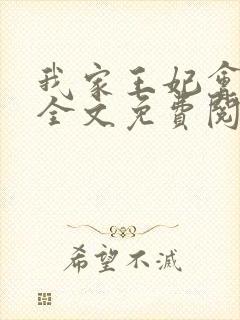 我家王妃會
全文免費閱
希望不滅